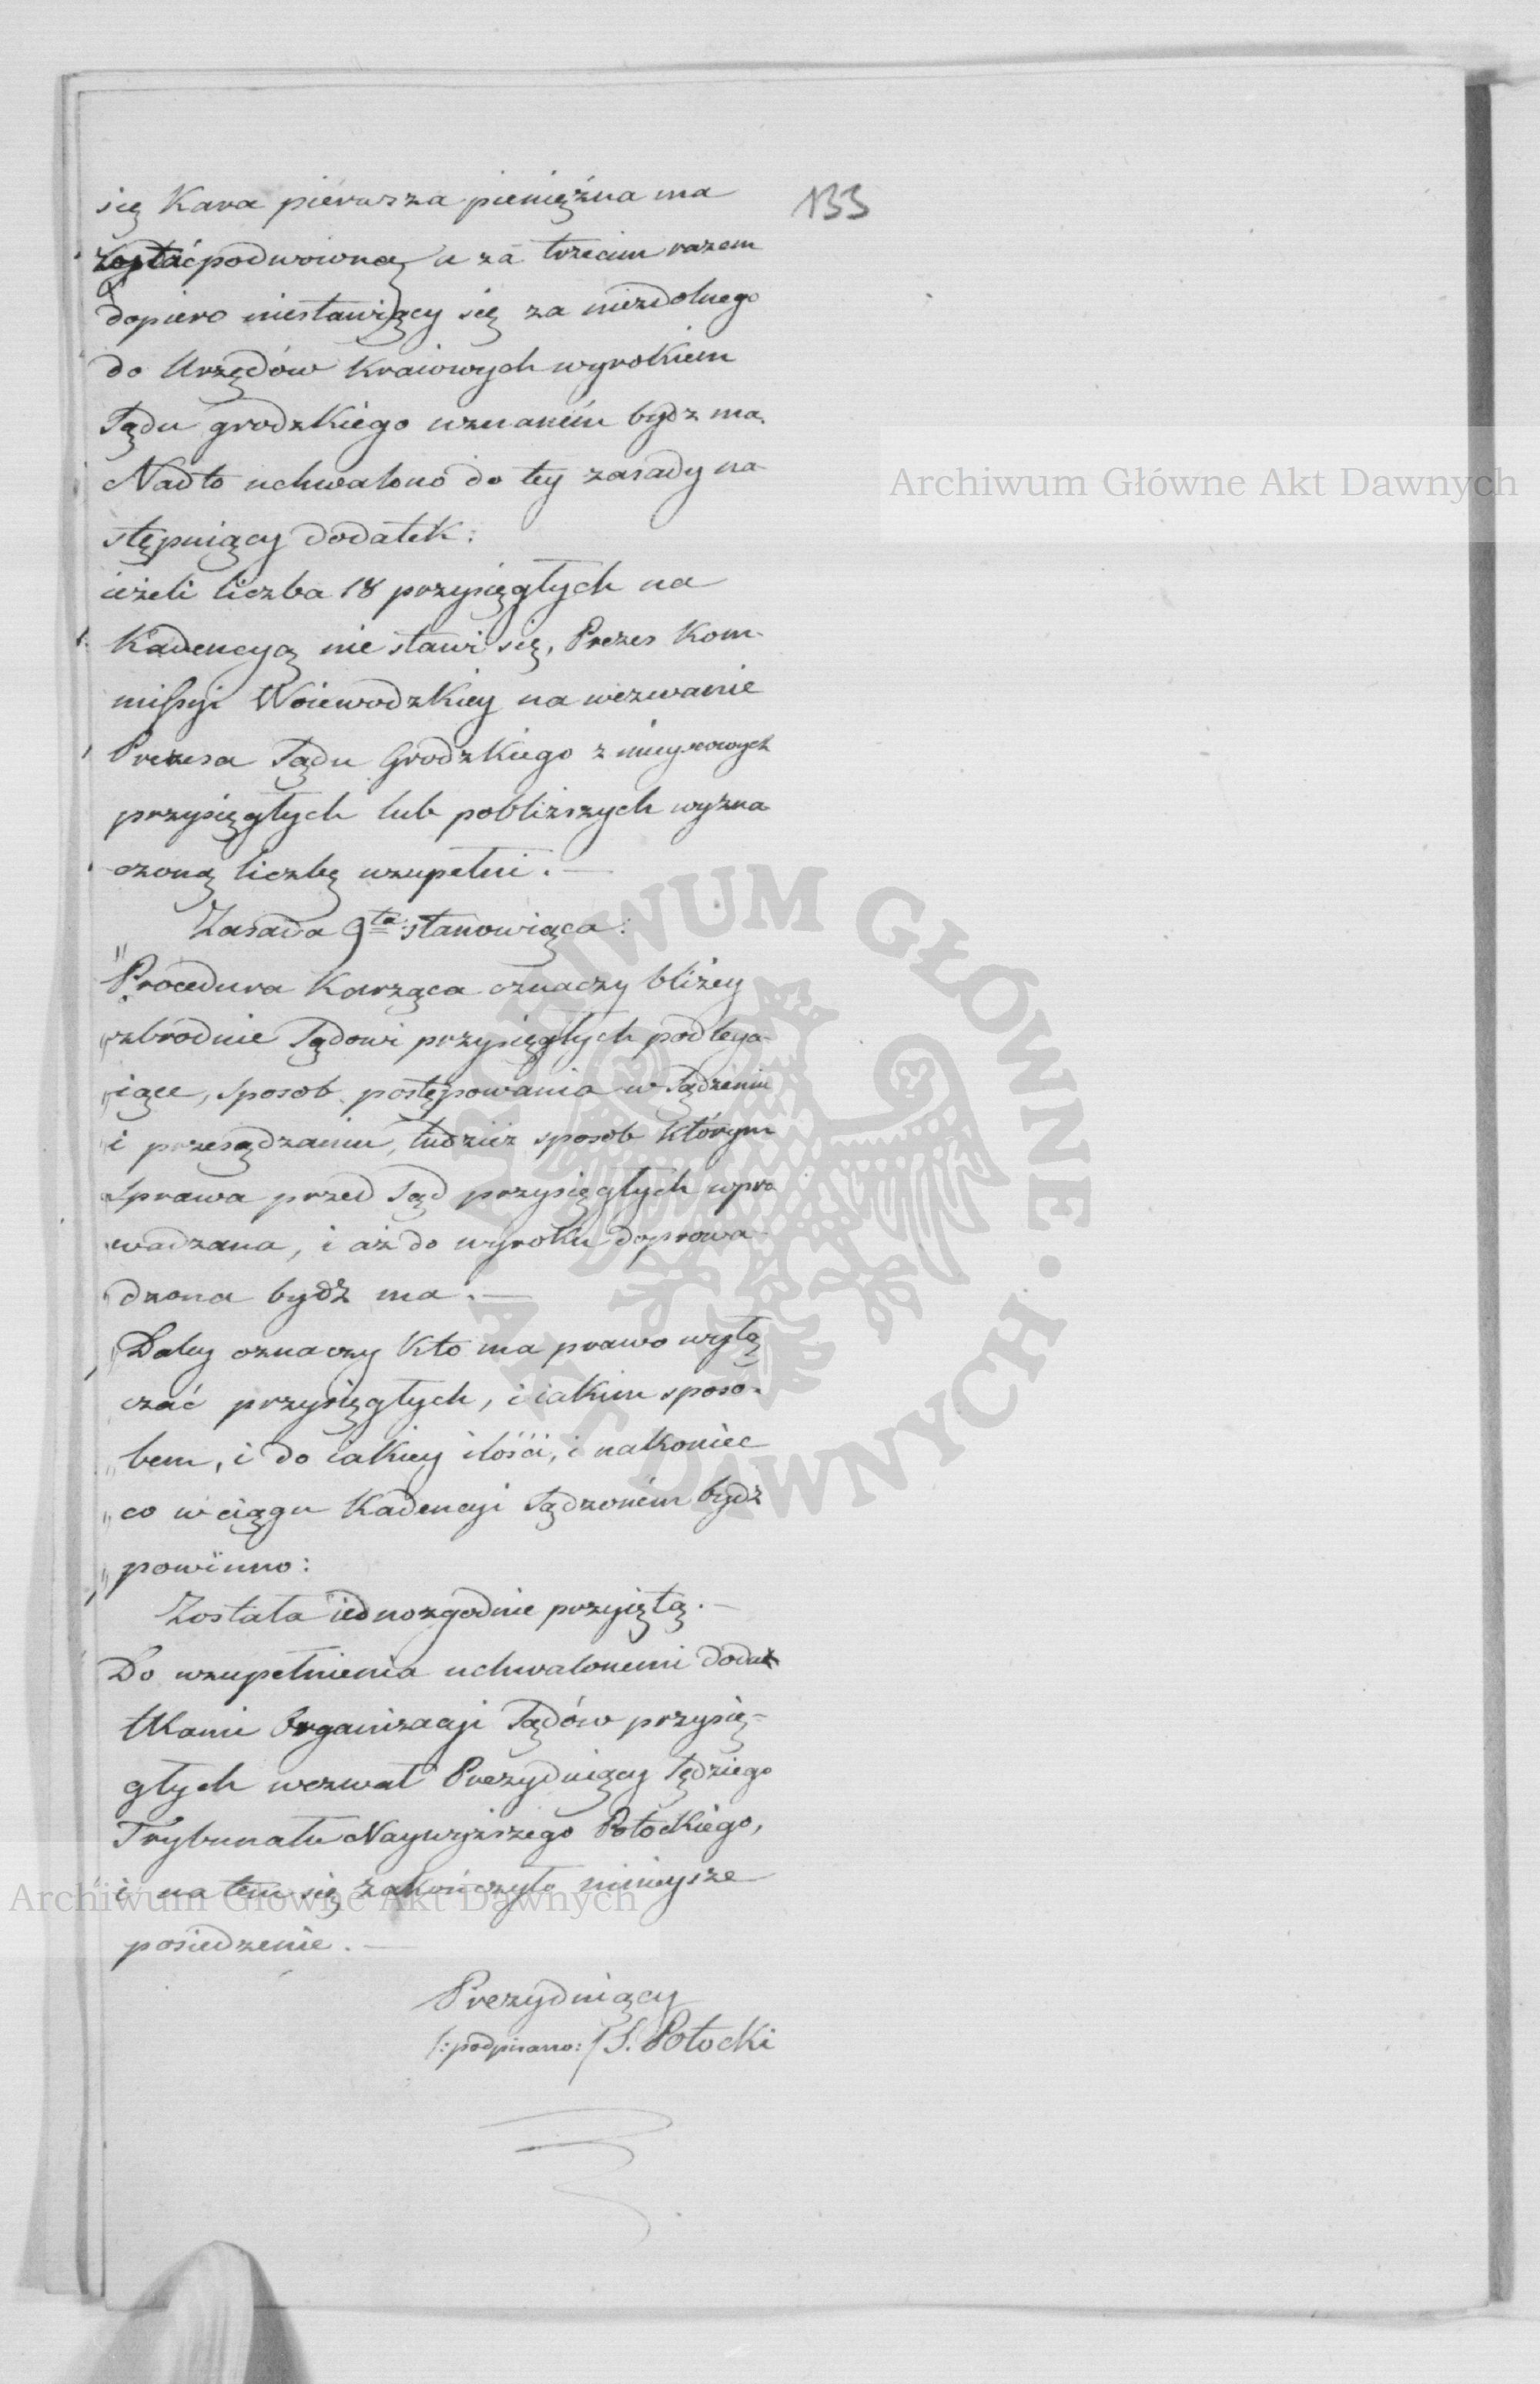 133
się Kara pierwsza pieniężna ma
zostać podwoiną a za trzecim razem
dopiero niestawiący się za niezdolnego
do Urzędów Kraiowych wyrokiem
Sądu grodzkiego uznaném bydz ma.
Nadto uchwalono do tey zasady na-
stępuiący dodatek:
ieżeli liczba 18 przysięgłych na
Kadencyą nie stawi się, Prezes Kom-
missyi Woiewodzkiey na wezwanie
Prezesa Sądu Grodzkiego z mieyscowych
przysięgłych lub pobliższych wyzna
czoną liczbę uzupełni. —
Zasada 9ta stanowiąca:
"Procedura Karząca oznaczy bliżey
"zbrodnie Sądowi przysięgłych podlega-
"iące, sposob postępowania w Sądzeniu
"i przesądzaniu, tudzież sposob którym
"Sprawa przed Sąd przysięgłych wpro
"wadzana, i aż do wyroku doprowa-
"dzona bydź ma. —
"Daley oznaczy Kto ma prawo wyłą
czać przysięgłych, i iakim sposo-
"bem, i do iakiey ilości, i nakoniec
"co w ciągu Kadencyi Sądzoném bydź
"powinno:
Została iednozgodnie przyiętą. —
Do uzupełnienia uchwalonemi dodat
tkami Organizacyi Sądów przysię-
głych wezwał Prezyduiący Sędziego
Trybunału Naywyższego Potockiego,
i na tem się zakończyło ninieysze
posiedzenie. —
Prezyduiący
/:podpisano:/ S. Potocki
Archiwum Główne Akt Dawnych
Archiwum Główne Akt Dawnych
ARCHIWUM GŁÓWNE · AKT DAWNYCH ·